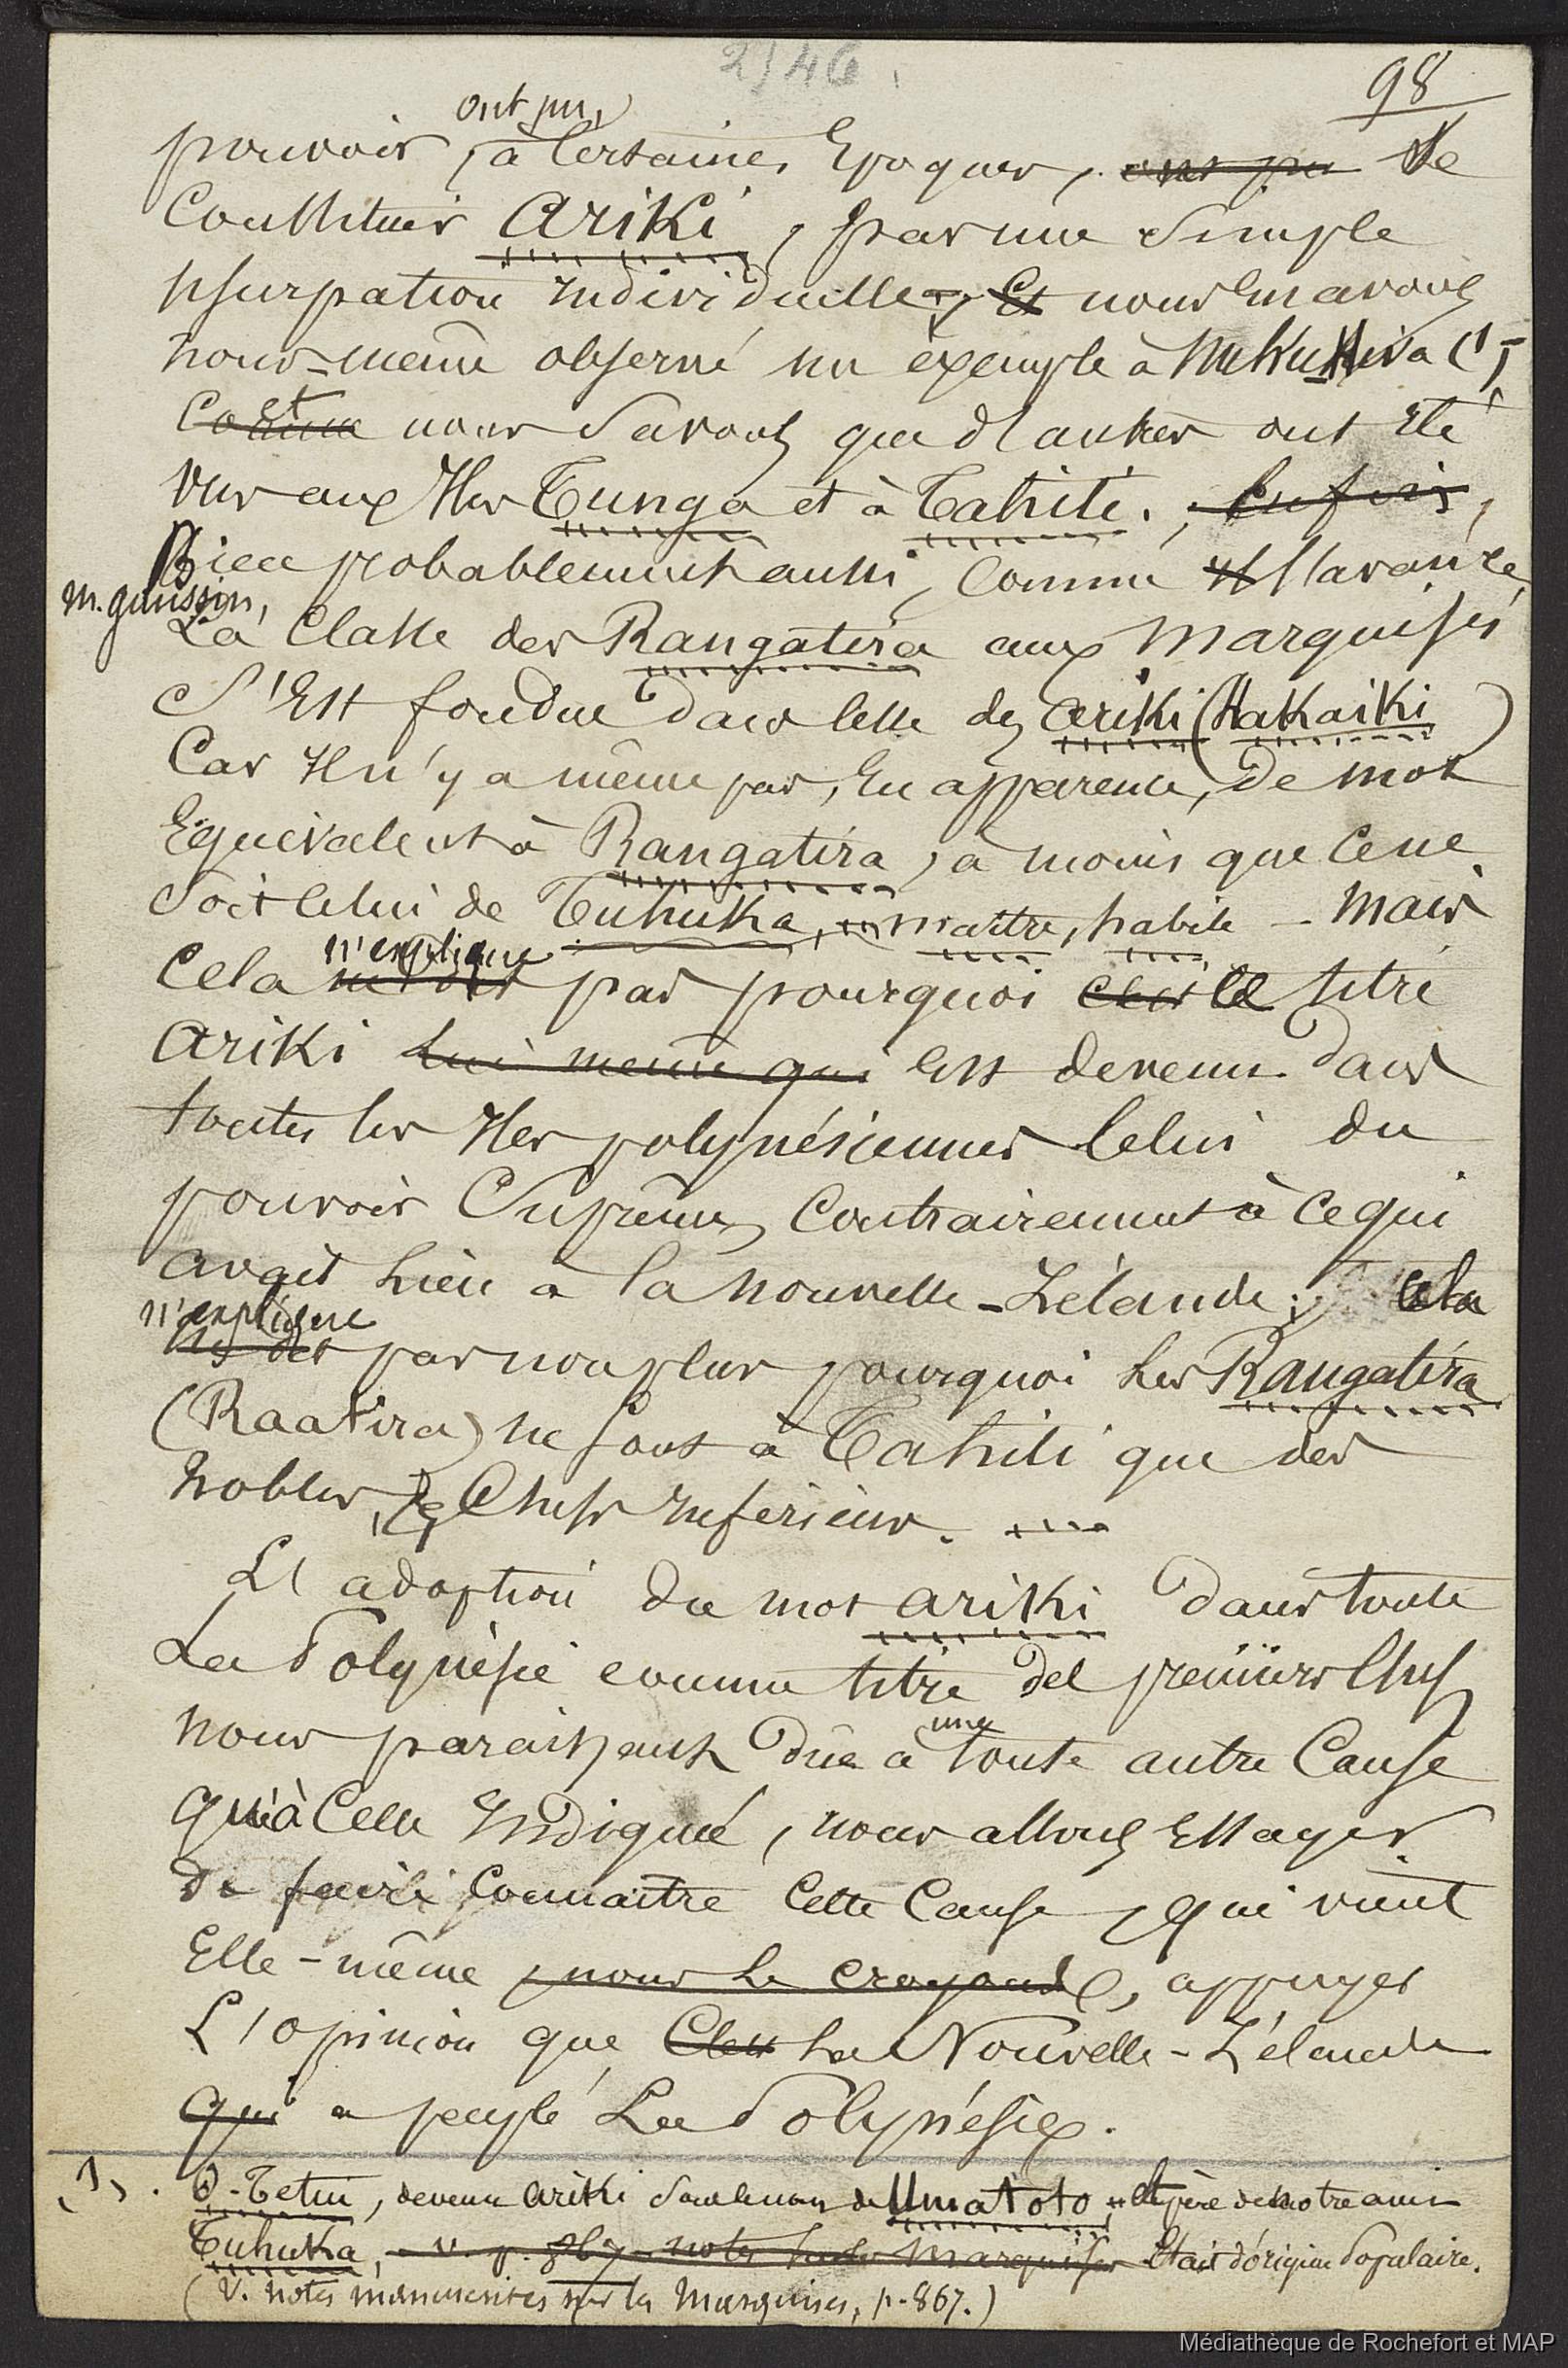 2/46
98
ont pu,
pouvoir, à certaines Epoques, ont pu se
Constituer Ariki, par une simple
usurpation individuelle; Et nous en avons
nous-même observé un exemple à NukuHiva (1)
Comme Et nous savons que d'autres ont été
vus aux Iles Tunga et à Tahiti. ; Enfin,
Bien probablement aussi, comme il l'avance
M. gaussin,
La Classe des Rangatira aux Marquises
S'est fondue dans celle des Ariki (Hakaiki)
Car il n'y a même pas, En apparence, de mot
Equivalent à Rangatira, à moins que ce ne
soit celui de Tuhuka, maître, habile - Mais
n'explique
Cela ne dit pas pourquoi le titre
Ariki lui même qui Est devenu dans
toutes les Iles polynésiennes celui du
pouvoir Suprême, Contrairement à ce qui
avait lieu à la Nouvelle-Zélande; cela
n'explique
ne dit pas non plus pourquoi les Rangatira
(Raatira) ne sont à Tahiti que des
nobles, Chefs inferieurs.
L'adoption du mot Ariki dans toute
La Polynésie comme titre des premiers Chefs
nous paraissant dûe à une toute autre Cause
qu'à Celle Indiqué, nous allons Essayer
de faire connaître cette Cause, qui vient
Elle-même, nous le croyons, appuyer
L'opinion que C'est La Nouvelle-Zélande
qui a peuplé La Polynésie.
(1). O-Tetui, devenu Ariki sous le nom de Umatoto, et père de notre ami
Tuhuka, - v. p. 867 notes sur les Marquises Etait d'origine Populaire.
(V. Notes manuscrites sur les Marquises, p. 867.)
Médiathèque de Rochefort et MAP